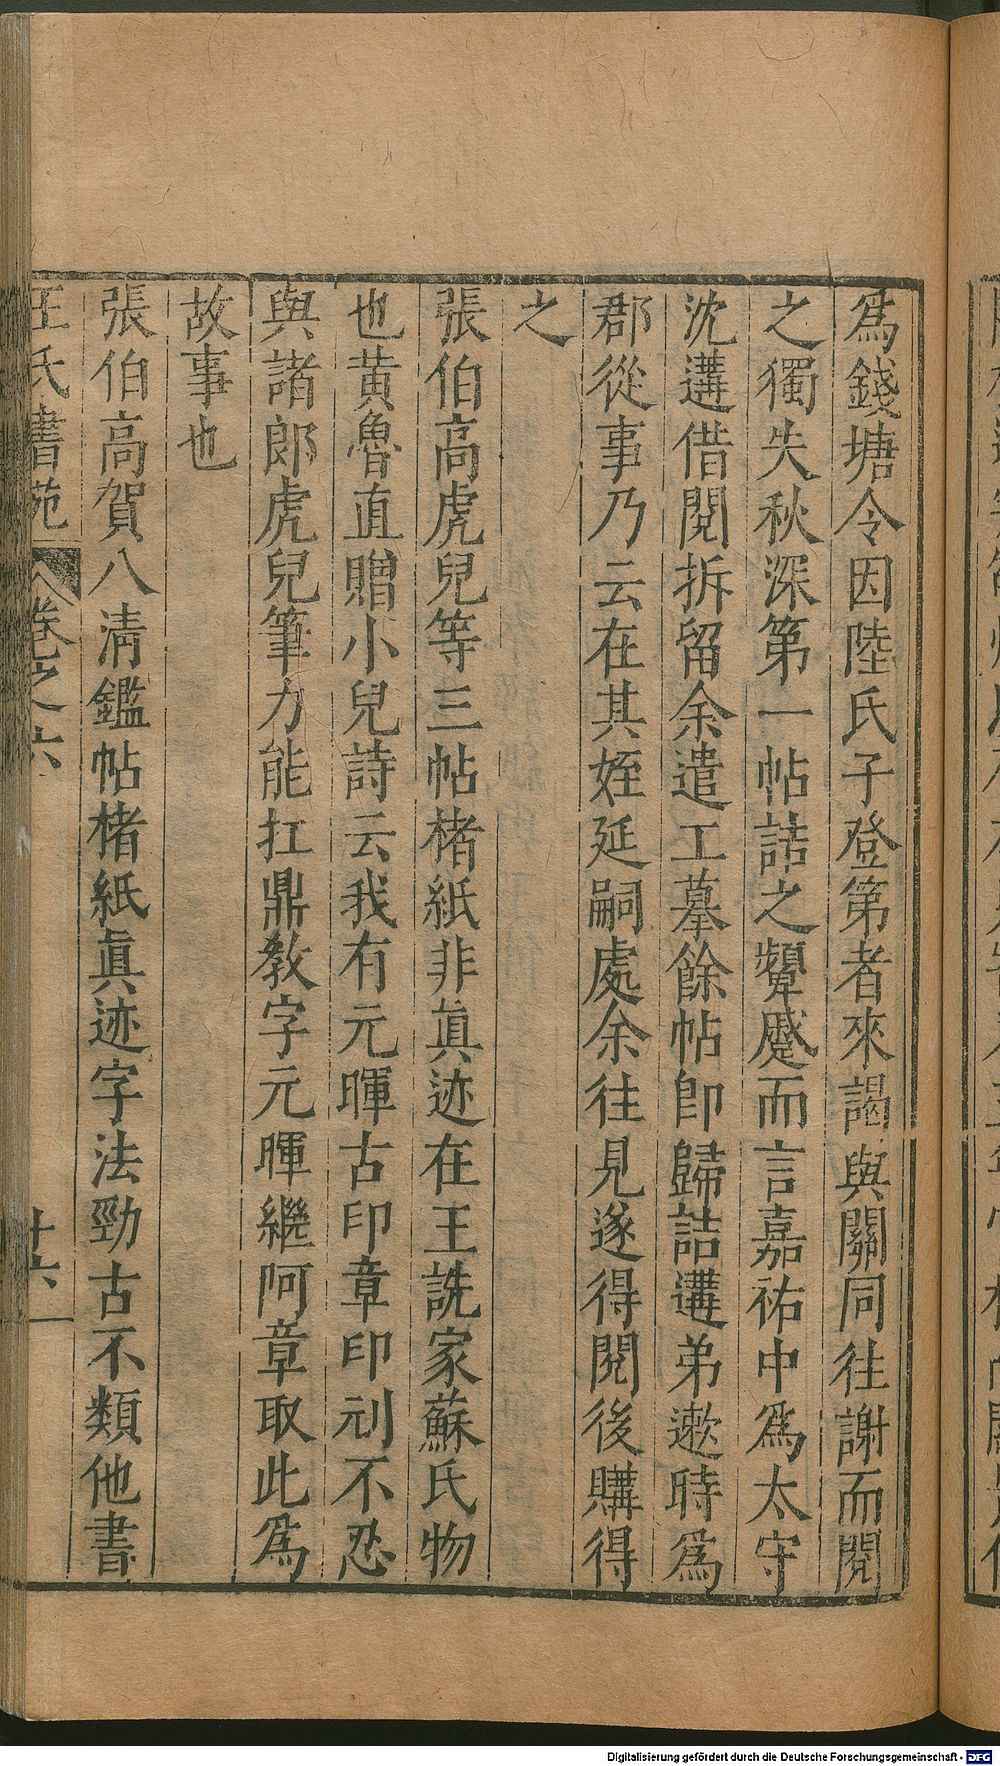 爲錢塘令因陸氏子登第者來謁與關同往謝而閱
之獨失秋深第一帖詰之顰蹙而言嘉祐中爲太守
沈遘借閱拆留余遣工摹餘帖卽歸詰遘弟遬時爲
郡從事乃云在其姪延嗣處余往見遂得閱後購得
之
張伯高虎兒等三帖楮紙非眞迹在王詵家蘇氏物
也黃魯直贈小兒詩云我有元暉古印章印刓不忍
與諸郎虎兒筆力能扛鼎教字元暉繼阿章取此爲
故事也
張伯高賀八淸鑑帖楮紙眞迹字法勁古不類他書
王氏書苑 卷之六 十六
Digitalisierung gefördert durch die Deutsche Forschungsgemeinschaft - DFG